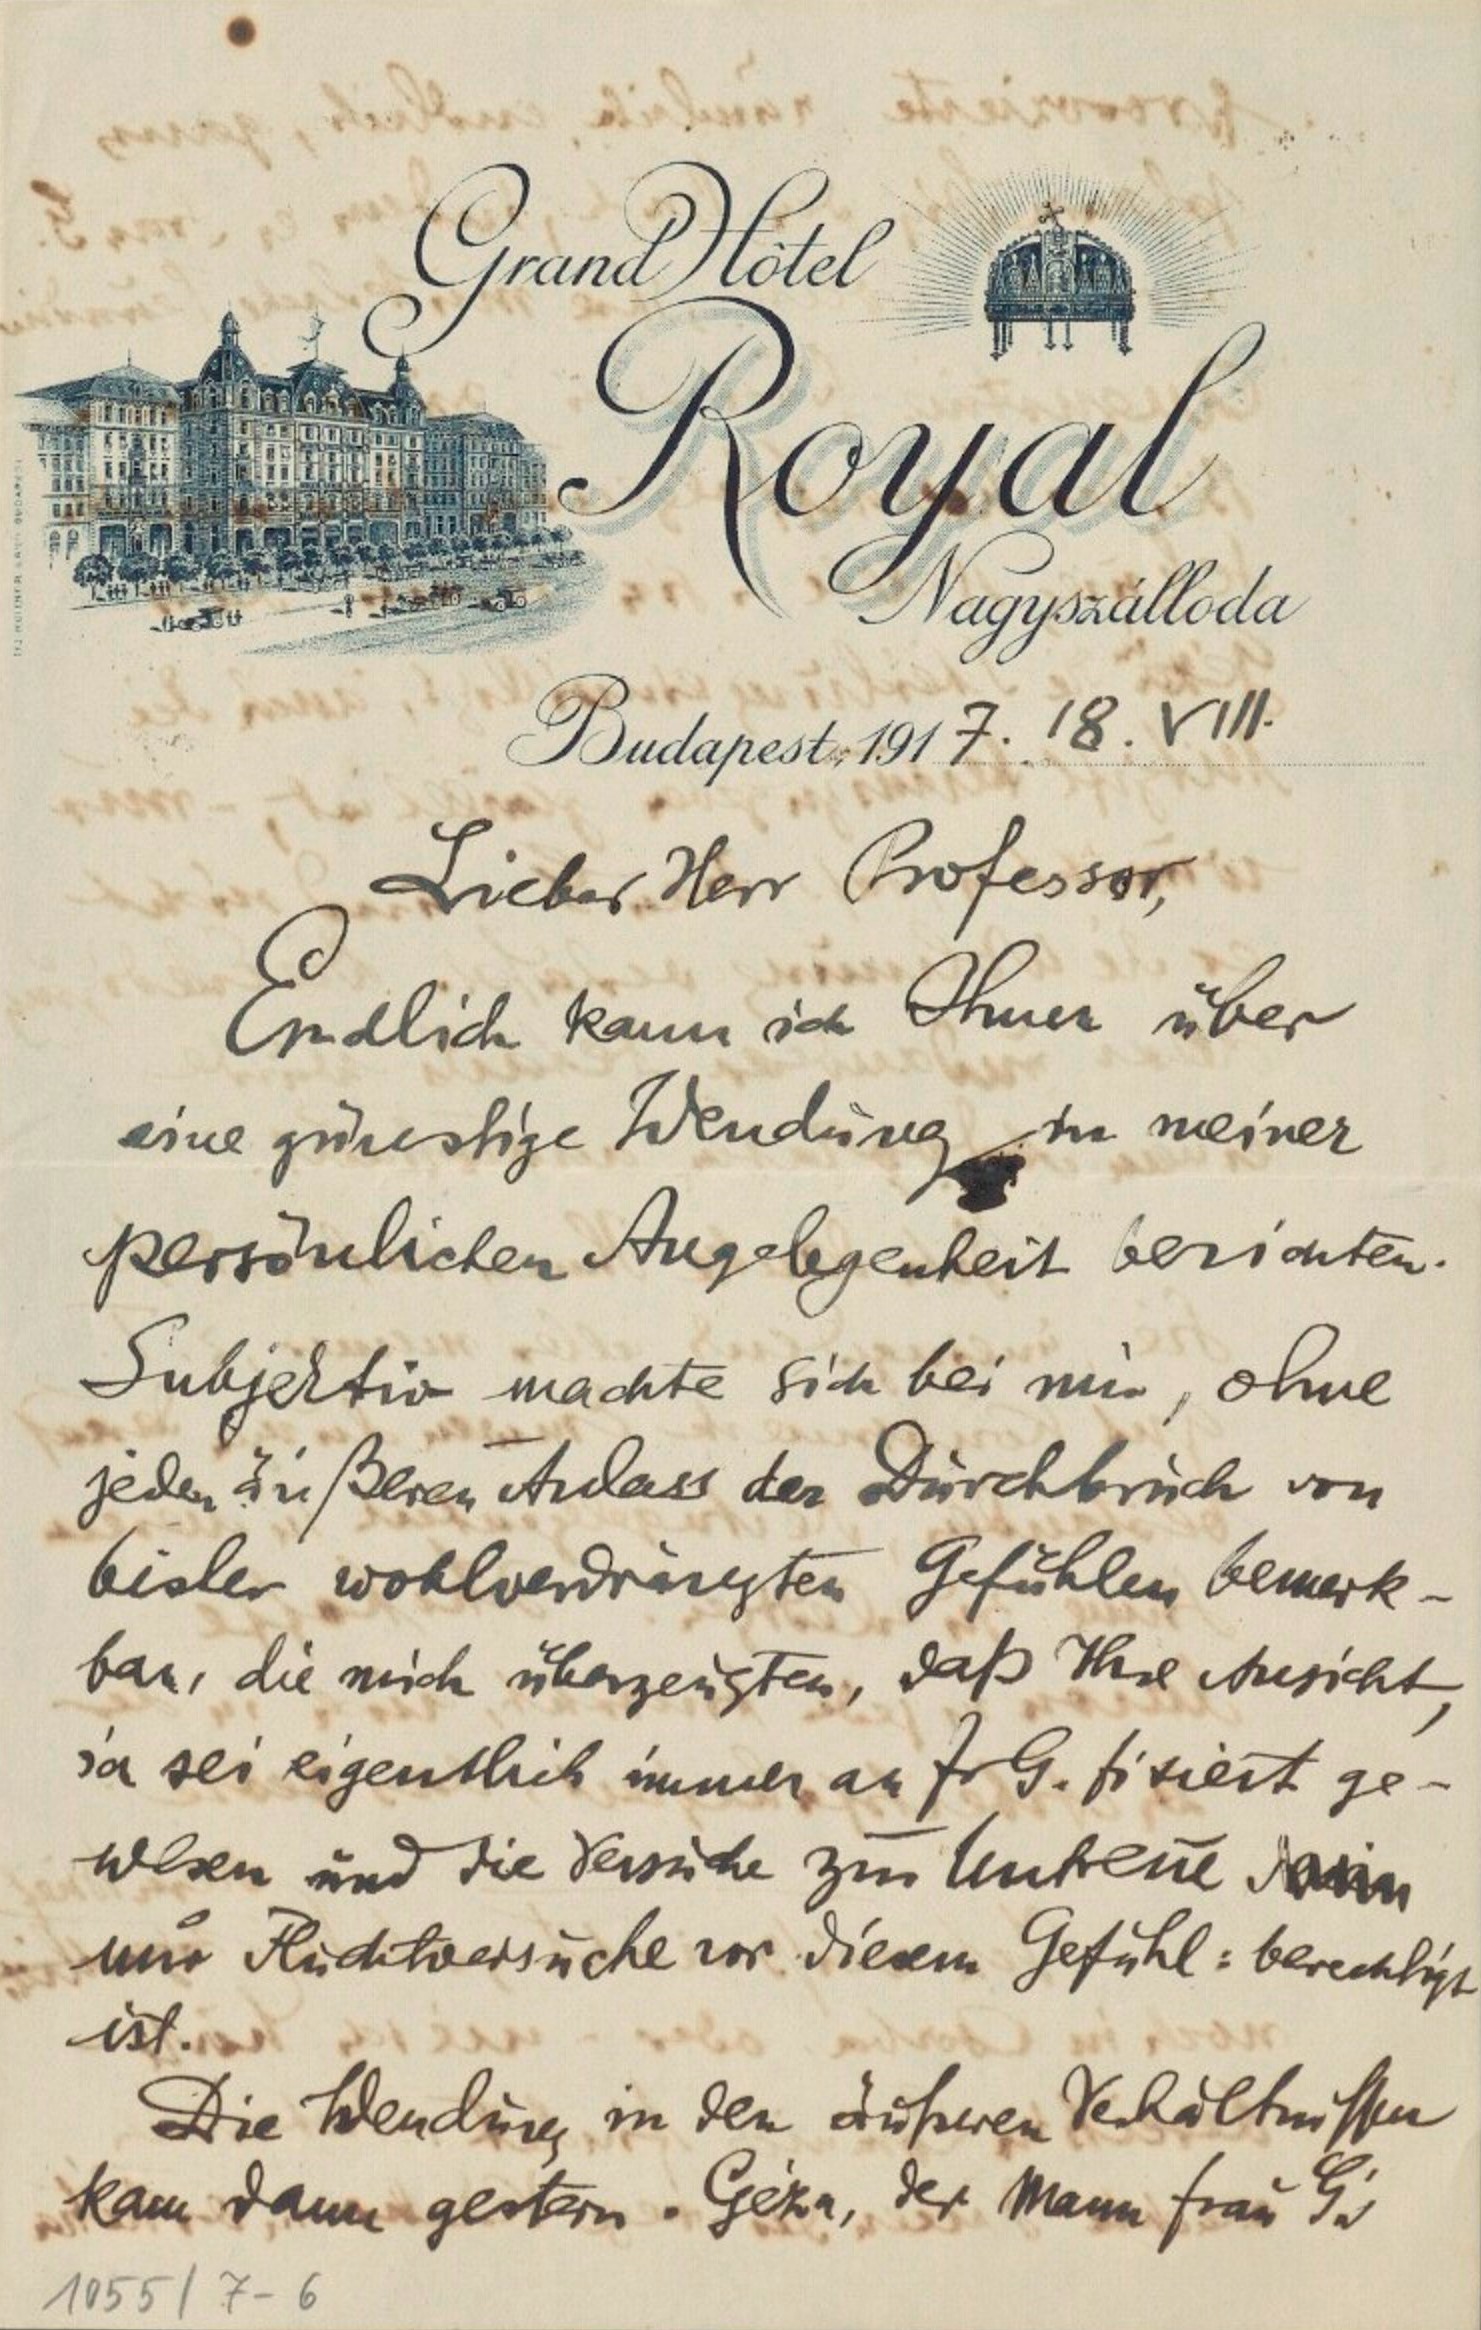 Grand Hôtel
Royal
Nagyszálloda
Budapest, 1917. 18. VIII.
Lieber Herr Professor,
Endlich kann ich Ihnen über
eine günstige Wendung in meiner
persönlichen Angelegenheit berichten.
Subjektiv machte sich bei mir, ohne
jeden äußeren Anlass der Durchbruch von
bisher wohlverdrängten Gefühlen bemerk-
bar, die mich überzeugten, daß Ihre Ansicht,
ich sei eigentlich immer an Fr G. fixiert ge-
wesen und die Versuche zur Untreue
nur Fluchtversuche vor diesem Gefühl: berechtigt
ist.
Die Wendung in den äußeren Verhältnissen
kam dann gestern. Géza, der Mann Frau G's
1055/7-6